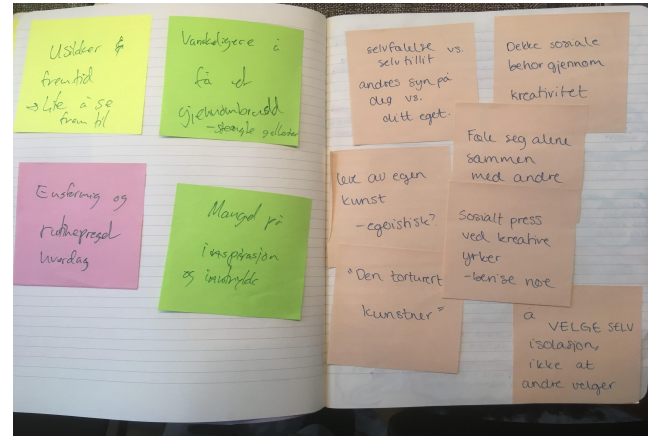 Usikker
fremtid
→ Lite å se
frem til
Vanskeligere å
få et
gjennombrudd
- stengte
Ensformig og
rutinepreget
hverdag
Mangel på
inspirasjon
og
selvfølelse vs.
selvtillit
andres syn på
deg vs.
ditt eget.
Dekke sosiale
behov gjennom
kreativitet
Føle seg alene
sammen
med andre
leve av egen
kunst
- egoistisk?
Sosialt press
ved kreative
yrker
- bevise noe
"Den torturert
kunstner"
å
VELGE SELV
isolasjon,
ikke at
andre velger